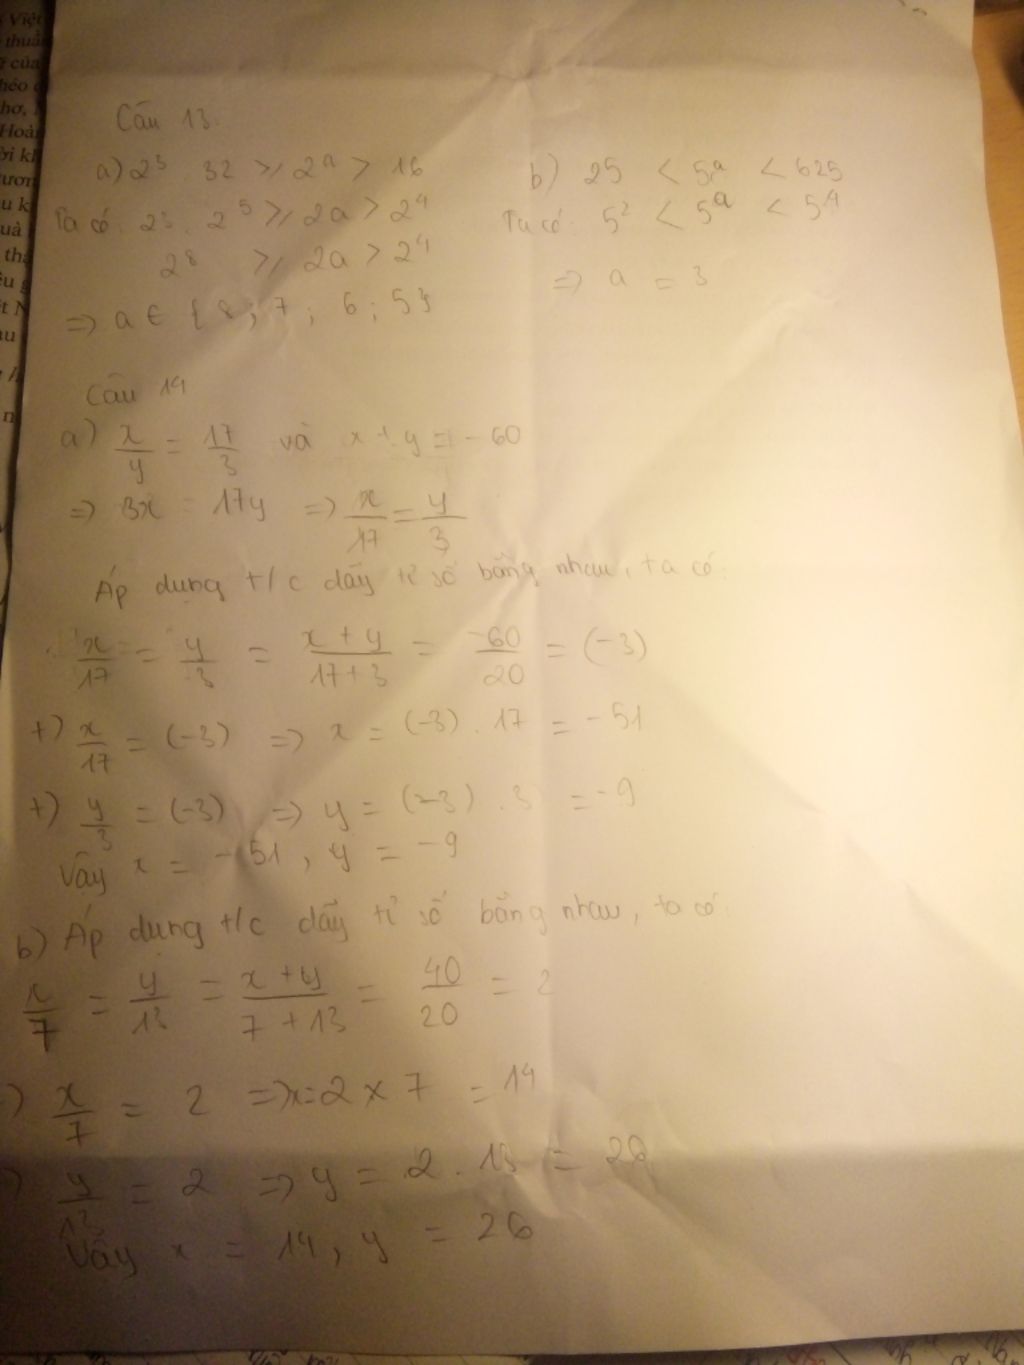 Việt
thuẫn
của
héo
hơ,
Hoàn
ời kh
ươn
u k
uà
thà
Câu 13.
a) 2³ . 32 ≥ 2ᵃ > 16
Ta có: 2³ . 2⁵ ≥ 2a > 2⁴
2⁸ ≥ 2a > 2⁴
=> a ∈ {8; 7; 6; 5}
b) 25 < 5ᵃ < 625
Ta có: 5² < 5ᵃ < 5⁴
=> a = 3
Câu 14
a) x/y = 17/3 và x + y = -60
=> 3x = 17y => x/17 = y/3
Áp dụng t/c dãy tỉ số bằng nhau, ta có:
x/17 = y/3 = x + y/17 + 3 = -60/20 = (-3)
+) x/17 = (-3) => x = (-3) . 17 = -51
+) y/3 = (-3) => y = (-3) . 3 = -9
Vậy x = -51, y = -9
b) Áp dụng t/c dãy tỉ số bằng nhau, ta có:
x/7 = y/13 = x + y/7 + 13 = 40/20 = 2
) x/7 = 2 => x = 2 × 7 = 14
) y/13 = 2 => y = 2 . 13 = 26
Vậy x = 14, y = 26